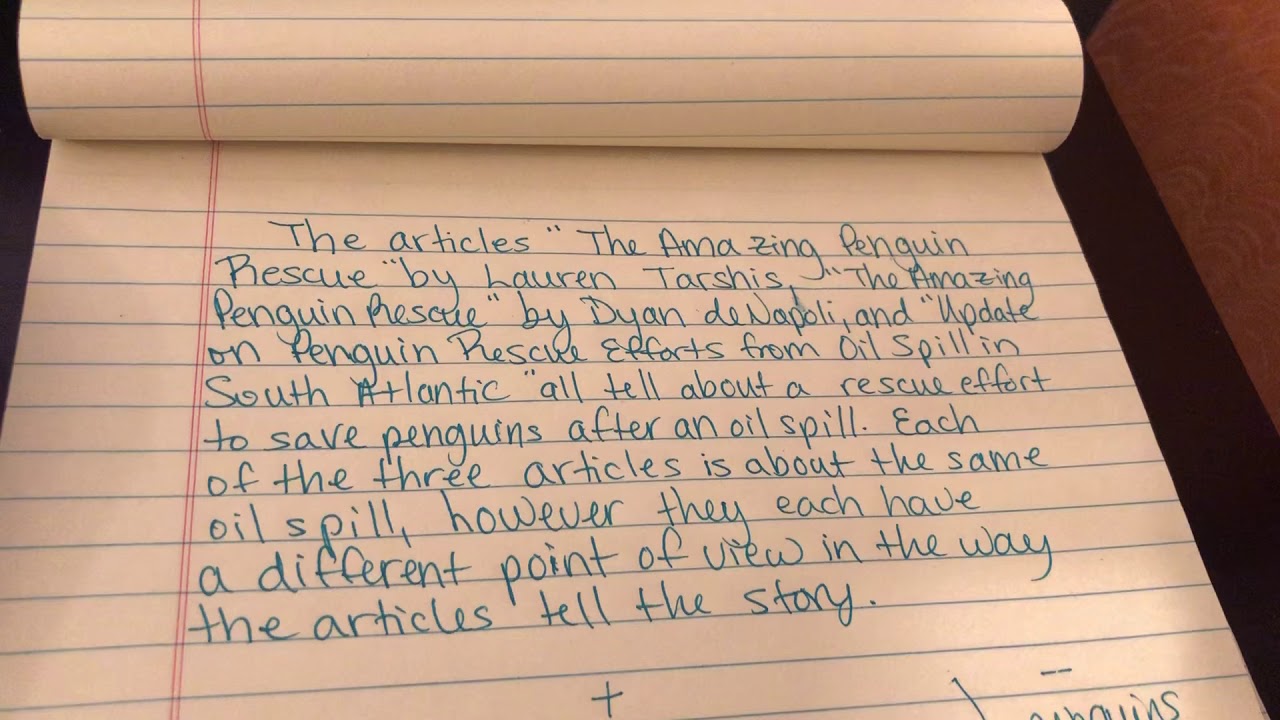 The articles "The Amazing Penguin
Rescue" by Lauren Tarshis, "The Amazing
Penguin Rescue" by Dyan deNapoli, and "Update
on Penguin Rescue Efforts from Oil Spill in
South Atlantic" all tell about a rescue effort
to save penguins after an oil spill. Each
of the three articles is about the same
oil spill, however they each have
a different point of view in the way
the articles tell the story.